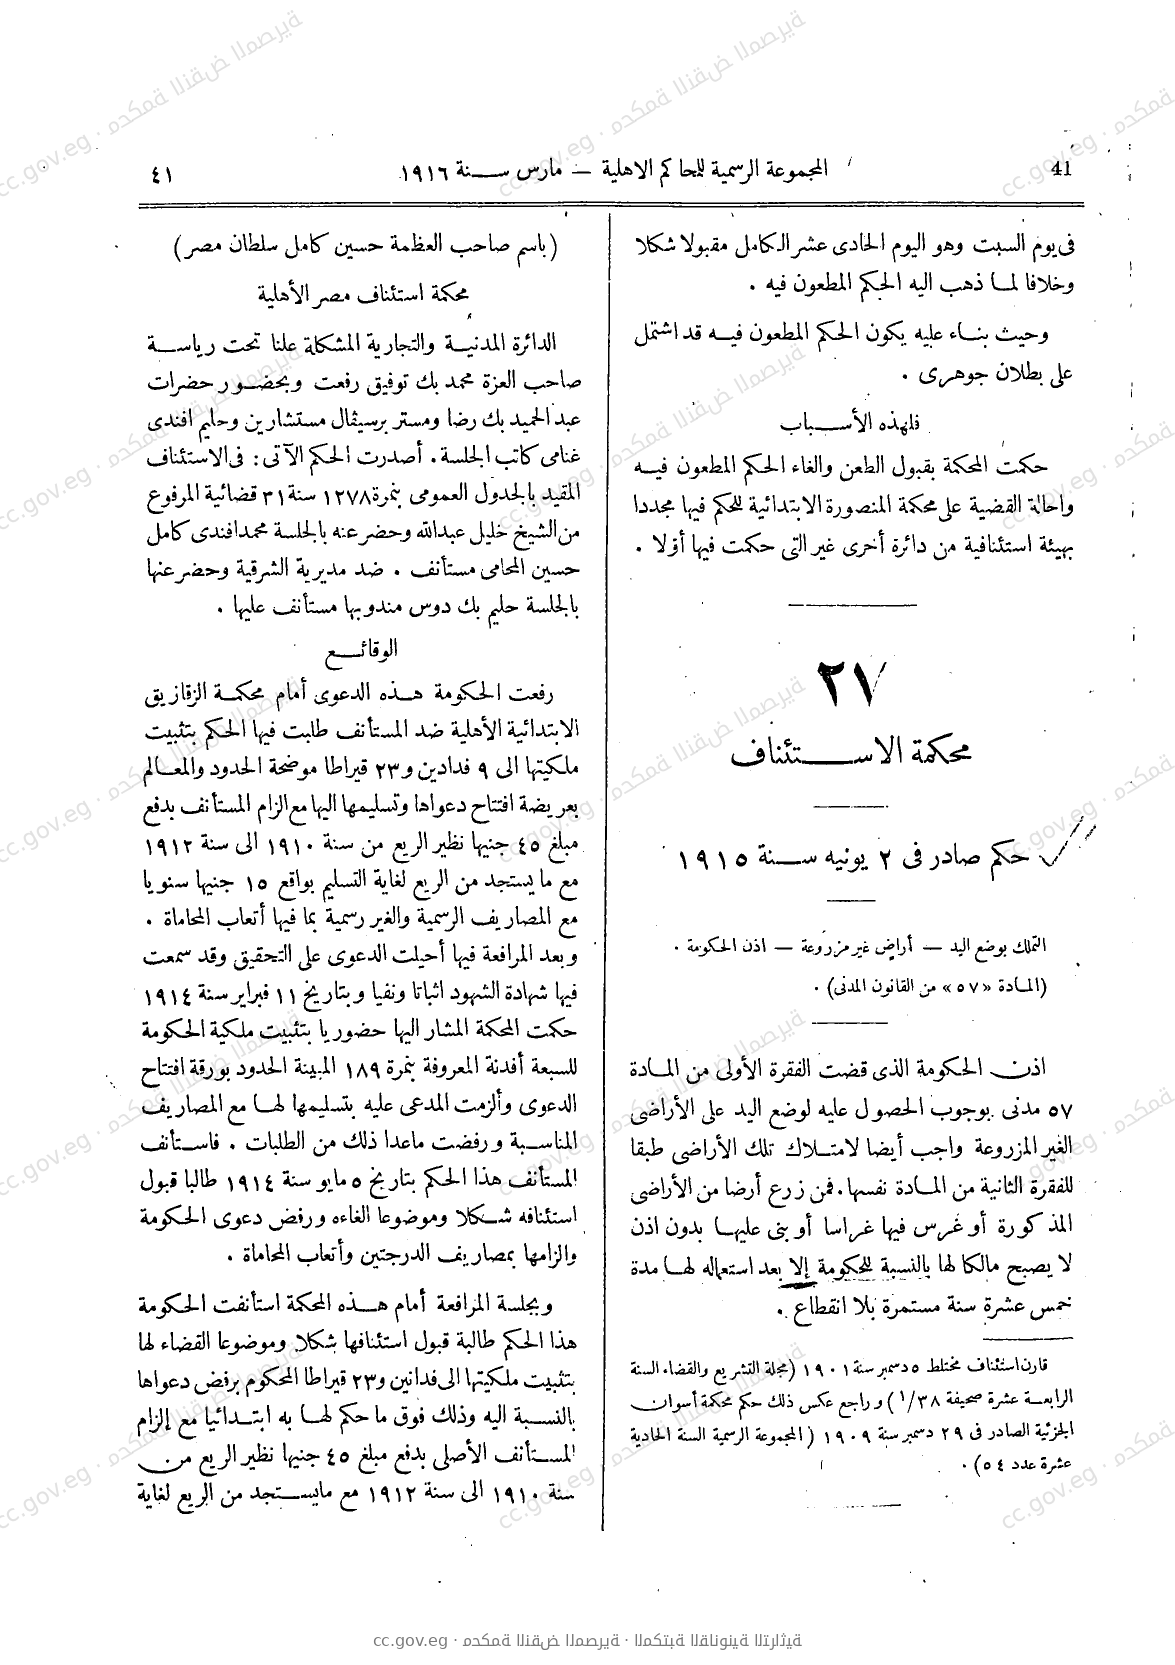 41
المجموعة الرسمية للمحاكم الاهلية — مارس سنة ١٩١٦
٤١
فى يوم السبت وهو اليوم الحادى عشر الكامل مقبولا شكلا
وخلافا لما ذهب اليه الحكم المطعون فيه .
وحيث بناء عليه يكون الحكم المطعون فيه قد اشتمل
على بطلان جوهرى .
فلهذه الأسباب
حكمت المحكمة بقبول الطعن والغاء الحكم المطعون فيه
واحالة القضية على محكمة المنصورة الابتدائية للحكم فيها مجددا
بهيئة استئنافية من دائرة أخرى غير التى حكمت فيها أوّلا .
٢٧
محكمة الاستئناف
حكم صادر فى ٢ يونيه سنة ١٩١٥
التملك بوضع اليد — أراضٍ غير مزروعة — اذن الحكومة .
(المادة «٥٧» من القانون المدنى) .
اذن الحكومة الذى قضت الفقرة الأولى من المادة
٥٧ مدنى بوجوب الحصول عليه لوضع اليد على الأراضى
الغير المزروعة واجب أيضا لامتلاك تلك الأراضى طبقا
للفقرة الثانية من المادة نفسها . فمن زرع أرضا من الأراضى
المذكورة أو غرس فيها غراسا أو بنى عليها بدون اذن
لا يصبح مالكا لها بالنسبة للحكومة إلا بعد استعماله لها مدة
خمس عشرة سنة مستمرة بلا انقطاع .
قارن استئناف مختلط ٥ دسمبر سنة ١٩٠١ (مجلة التشريع والقضاء السنة
الرابعة عشرة صحيفة ١/٣٨) وراجع عكس ذلك حكم محكمة أسوان
الجزئية الصادر فى ٢٩ دسمبر سنة ١٩٠٩ (المجموعة الرسمية السنة الحادية
عشرة عدد ٥٤) .
(باسم صاحب العظمة حسين كامل سلطان مصر)
محكمة استئناف مصر الأهلية
الدائرة المدنية والتجارية المشكلة علنا تحت رياسة
صاحب العزة محمد بك توفيق رفعت وبحضور حضرات
عبد الحميد بك رضا ومستر برسيڤال مستشارين وحليم افندى
غنامى كاتب الجلسة . أصدرت الحكم الآتى : فى الاستئناف
المقيد بالجدول العمومى بنمرة ١٢٧٨ سنة ٣١ قضائية المرفوع
من الشيخ خليل عبدالله وحضر عنه بالجلسة محمد افندى كامل
حسين المحامى مستأنف . ضد مديرية الشرقية وحضر عنها
بالجلسة حليم بك دوس مندوبها مستأنف عليها .
الوقائع
رفعت الحكومة هذه الدعوى أمام محكمة الزقازيق
الابتدائية الأهلية ضد المستأنف طلبت فيها الحكم بتثبيت
ملكيتها الى ٩ فدادين و٢٣ قيراطا موضحة الحدود والمعالم
بعريضة افتتاح دعواها وتسليمها اليها مع الزام المستأنف بدفع
مبلغ ٤٥ جنيها نظير الريع من سنة ١٩١٠ الى سنة ١٩١٢
مع ما يستجد من الريع لغاية التسليم بواقع ١٥ جنيها سنويا
مع المصاريف الرسمية والغير رسمية بما فيها أتعاب المحاماة .
وبعد المرافعة فيها أحيلت الدعوى على التحقيق وقد سمعت
فيها شهادة الشهود اثباتا ونفيا وبتاريخ ١١ فبراير سنة ١٩١٤
حكمت المحكمة المشار اليها حضوريا بتثبيت ملكية الحكومة
للسبعة أفدنة المعروفة بنمرة ١٨٩ المبينة الحدود بورقة افتتاح
الدعوى وألزمت المدعى عليه بتسليمها لها مع المصاريف
المناسبة ورفضت ماعدا ذلك من الطلبات . فاستأنف
المستأنف هذا الحكم بتاريخ ٥ مايو سنة ١٩١٤ طالبا قبول
استئنافه شكلا وموضوعا الغاءه ورفض دعوى الحكومة
والزامها بمصاريف الدرجتين وأتعاب المحاماة .
وبجلسة المرافعة أمام هذه المحكمة استأنفت الحكومة
هذا الحكم طالبة قبول استئنافها شكلا وموضوعا القضاء لها
بتثبيت ملكيتها الى فدانين و٢٣ قيراطا المحكوم برفض دعواها
بالنسبة اليه وذلك فوق ما حكم لها به ابتدائيا مع إلزام
المستأنف الأصلى بدفع مبلغ ٤٥ جنيها نظير الريع من
سنة ١٩١٠ الى سنة ١٩١٢ مع مايستجد من الريع لغاية
cc.gov.eg · محكمة النقض المصرية · المكتبة القانونية التراثية